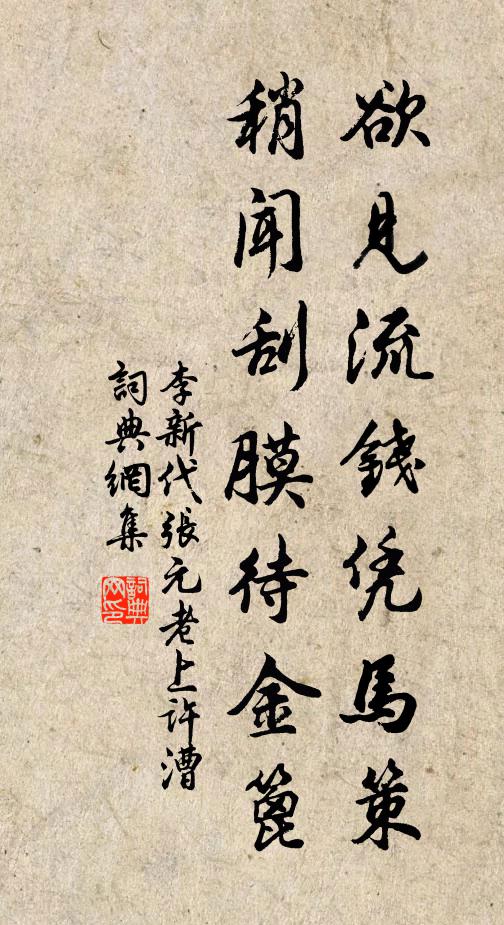 欲見流錢凭馬策
稍聞刮膜待金篦
李新代張元老上許漕
詞典網集
詞典網印